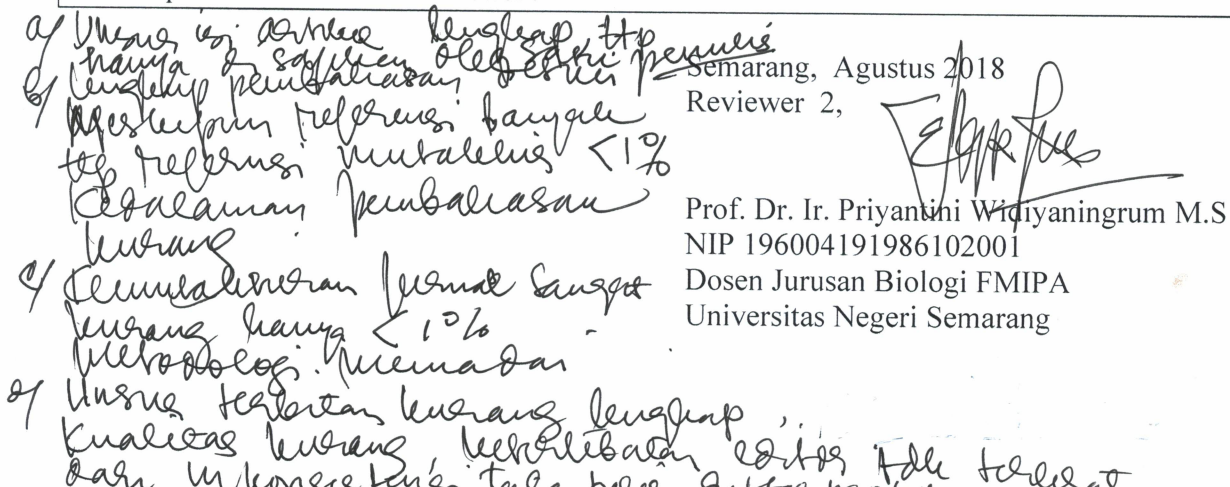 a/ Unsur isi artikel lengkap ttp
hanya oleh penulis
b/ lengkap pembahasan
Meskipun referensi banyak
ttp referensi mutakhir <1%
Kedalaman pembahasan
kurang
c/ Kemutakhiran jurnal sangat
kurang hanya <1%
Metodologi memadai
d/ Unsur terbitan kurang lengkap,
Kualitas kurang, keterlibatan editor tdk terlihat
dari inkonsistensi tata
Semarang, Agustus 2018
Reviewer 2,
Prof. Dr. Ir. Priyantini Widiyaningrum M.S
NIP 196004191986102001
Dosen Jurusan Biologi FMIPA
Universitas Negeri Semarang